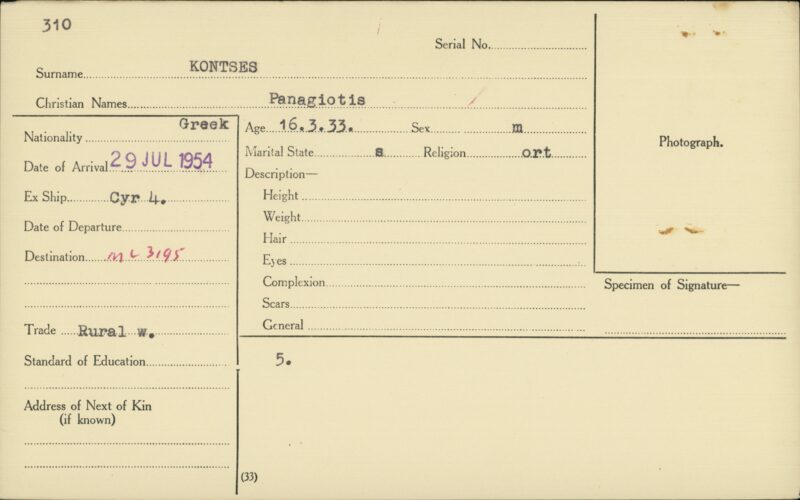 310
Serial No.
Surname KONTSES
Christian Names Panagiotis
Nationality Greek
Age 16.3.33. Sex m
Date of Arrival 29 JUL 1954
Marital State s Religion ort
Ex Ship Cyr 4.
Description—
Height
Date of Departure
Weight
Hair
Destination M L 3195
Eyes
Complexion
Scars
Trade Rural w.
General
Standard of Education
5.
Address of Next of Kin
(if known)
(33)
Photograph.
Specimen of Signature—